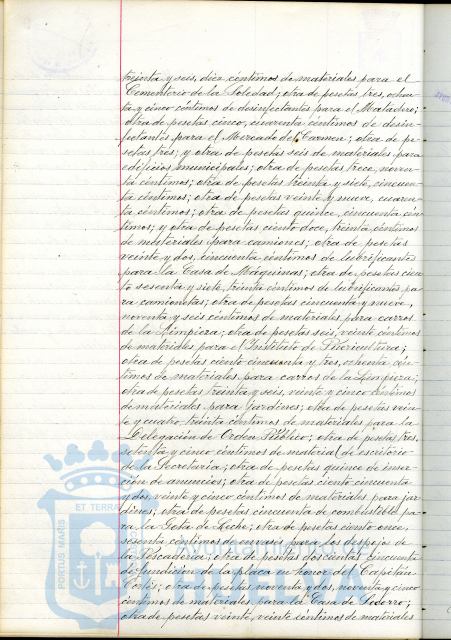 treinta y seis, diez céntimos de materiales para el
Cementerio de la Soledad; otra de pesetas tres, ochen-
ta y cinco céntimos de desinfectantes para el Matadero;
otra de pesetas cinco, cuarenta céntimos de desin-
fectantes para el Mercado del Carmen; otra de pe-
setas tres; y otra de pesetas seis de materiales para
edificios municipales; otra de pesetas trece, noven-
ta céntimos; otra de pesetas treinta y siete, cincuen-
ta céntimos; otra de pesetas veinte y nueve, cuaren-
ta céntimos; otra de pesetas quince, cincuenta cén-
timos; y otra de pesetas ciento doce, treinta céntimos
de materiales para camiones; otra de pesetas
veinte y dos, cincuenta céntimos de lubrificantes
para la Casa de Máquinas; otra de pesetas cien-
to sesenta y siete, treinta céntimos de lubrificantes pa-
ra camionetas; otra de pesetas cincuenta y nueve,
noventa y seis céntimos de materiales para carros
de la Limpieza; otra de pesetas seis, veinte céntimos
de materiales para el Instituto de Puericultura;
otra de pesetas ciento cincuenta y tres, ochenta cén-
timos de materiales para carros de la Limpieza;
otra de pesetas treinta y seis, veinte y cinco céntimos
de materiales para Jardines; otra de pesetas vein-
te y cuatro, treinta céntimos de materiales para la
Delegación de Orden Público; otra de pesetas tres,
setenta y cinco céntimos de material de escritorio
de la Secretaria; otra de pesetas quince de inser-
ción de anuncios; otra de pesetas ciento cincuenta
y dos, veinte y cinco céntimos de materiales para jar-
dines; otra de pesetas cincuenta de combustible pa-
ra la Gota de Leche; otra de pesetas ciento once,
sesenta céntimos de envases para los despojos de
la Pescadería; otra de pesetas doscientas cincuenta
de fundición de la placa en honor del Capitán
Cortés; otra de pesetas noventa y dos, noventa y cinco
céntimos de materiales para la Casa de Socorro;
otra de pesetas veinte, veinte céntimos de materiales
ET TERRA
PORTUS MARIS